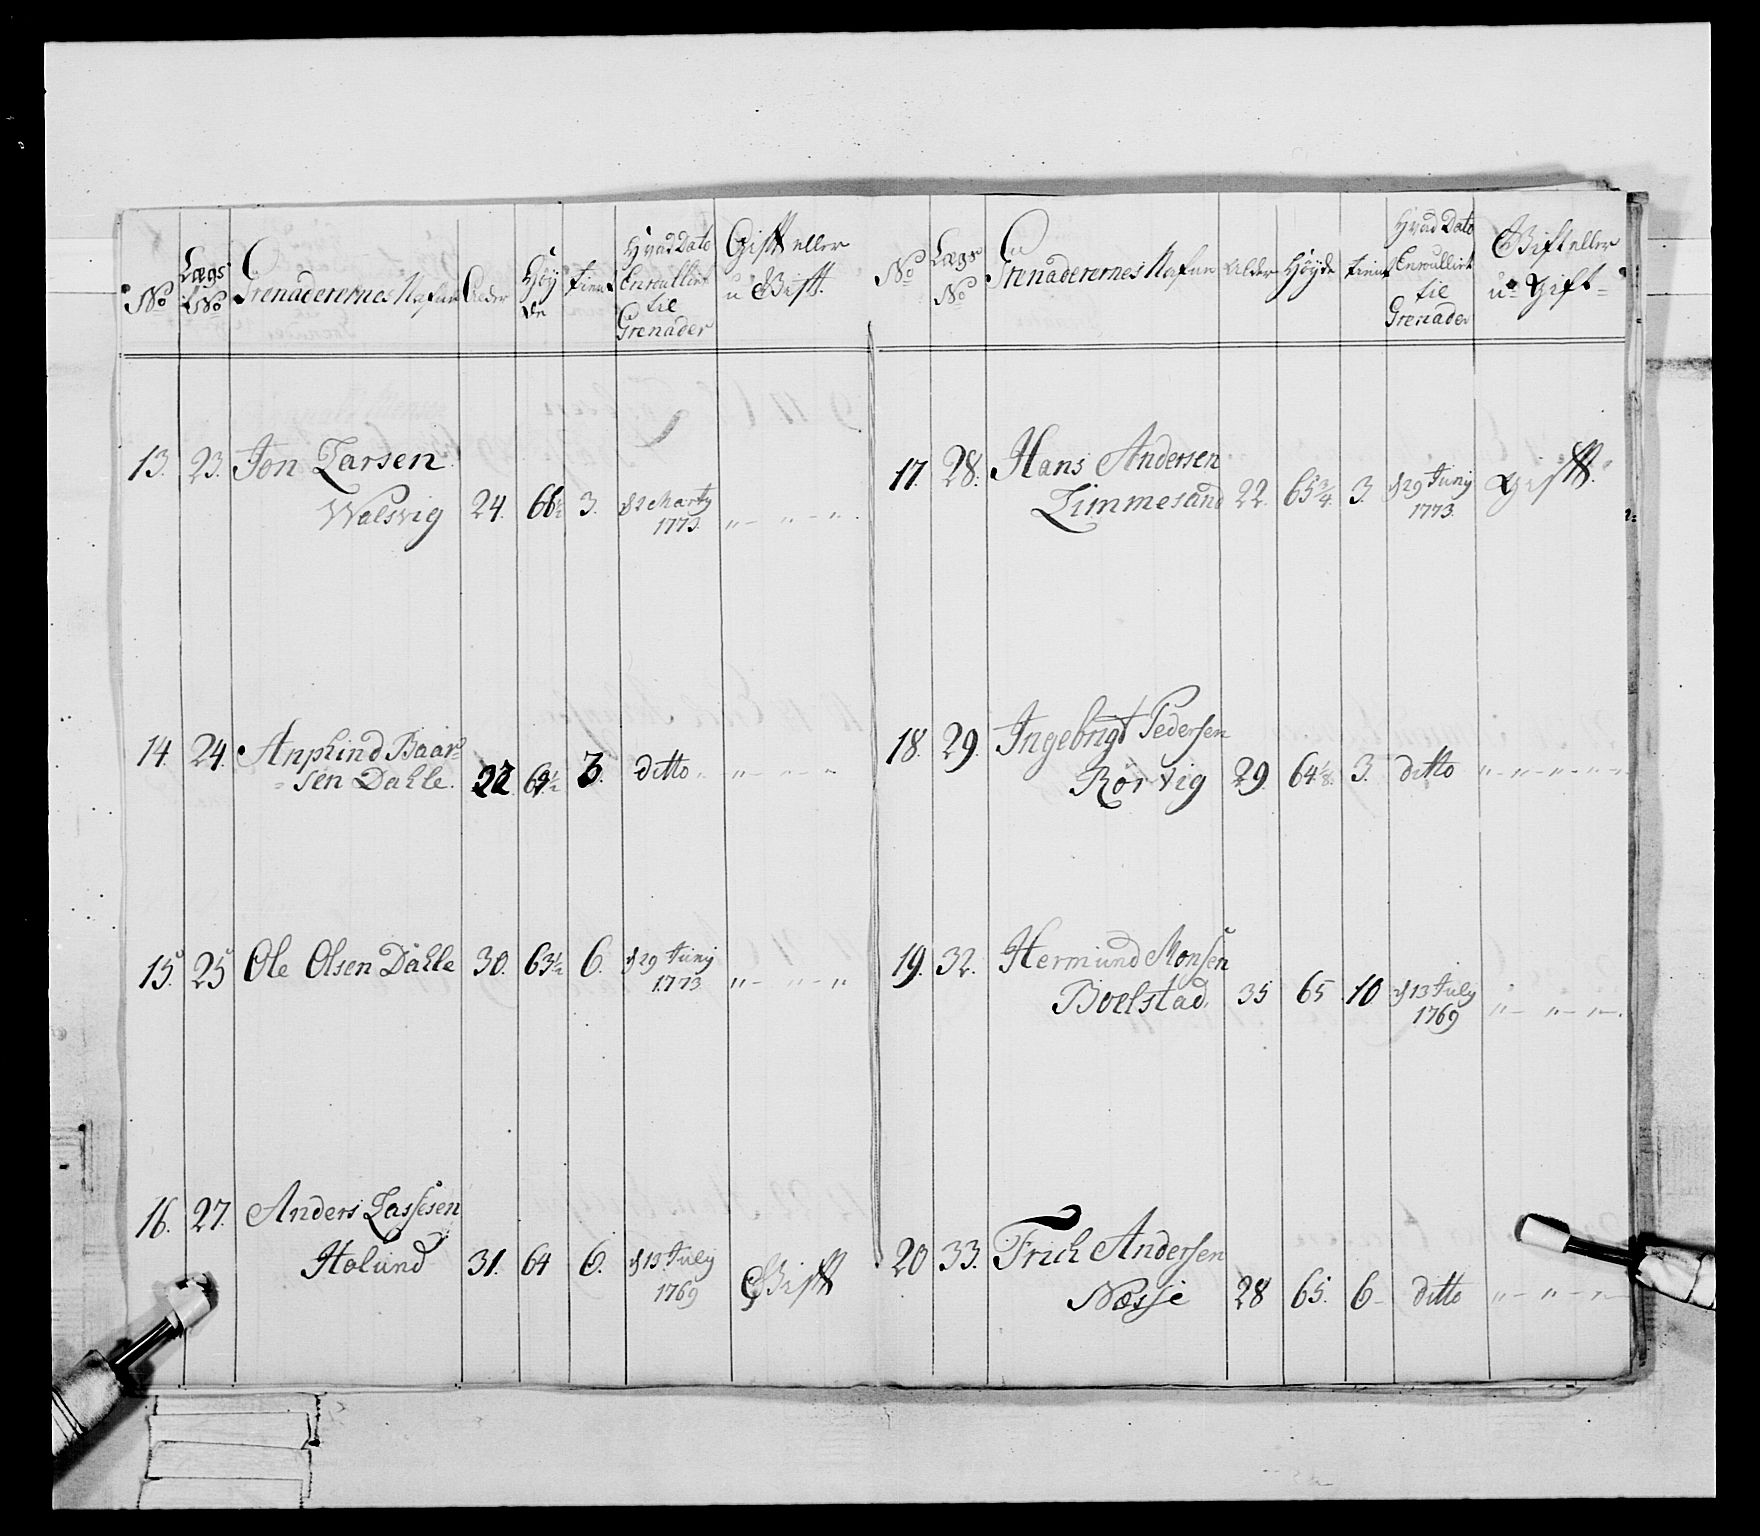 No
Lægs No
Grenaderernes Nafne
Alder
Høyde
tient
Hvad Dato Enroullirt til Grenader
Gift eller u Gift.
13. 23. Jon Larsen
Walsvig 24. 66½ 3. d 2 Marty 1773. „ - „ - „
14. 24. Anphind Baar=
=sen Dahle. 3. ditto. „ - „ - „
15. 25 Ole Olsen Dahle 30. 63½ 6. d 29 Junij 1773 „ - „ - „
16. 27. Anders Lassesen
Holund 31. 64 6. d 13 July 1769 Gift
No
Lægs No
Grenaderernes Nafne
Alder
Høyde
tient
Hvad Dato Enroullirt til Grenader
Gift eller u Gift=
17. 28. Hans Andersen
Limmesand 22. 65¾. 3. d 29 Junij 1773. Gift.
18. 29. Ingebrigt Pedersen
Rörvig 29. 64⅛. 3. ditto „ - „ - „ - „ - „
19. 32. Hermund Monsen
Boelstad. 35 65 10 d 13 July 1769 „ - „ - „ -
20 33. Frich Andersen
Næsse 28 65. 6- ditto „ - „ - „ -